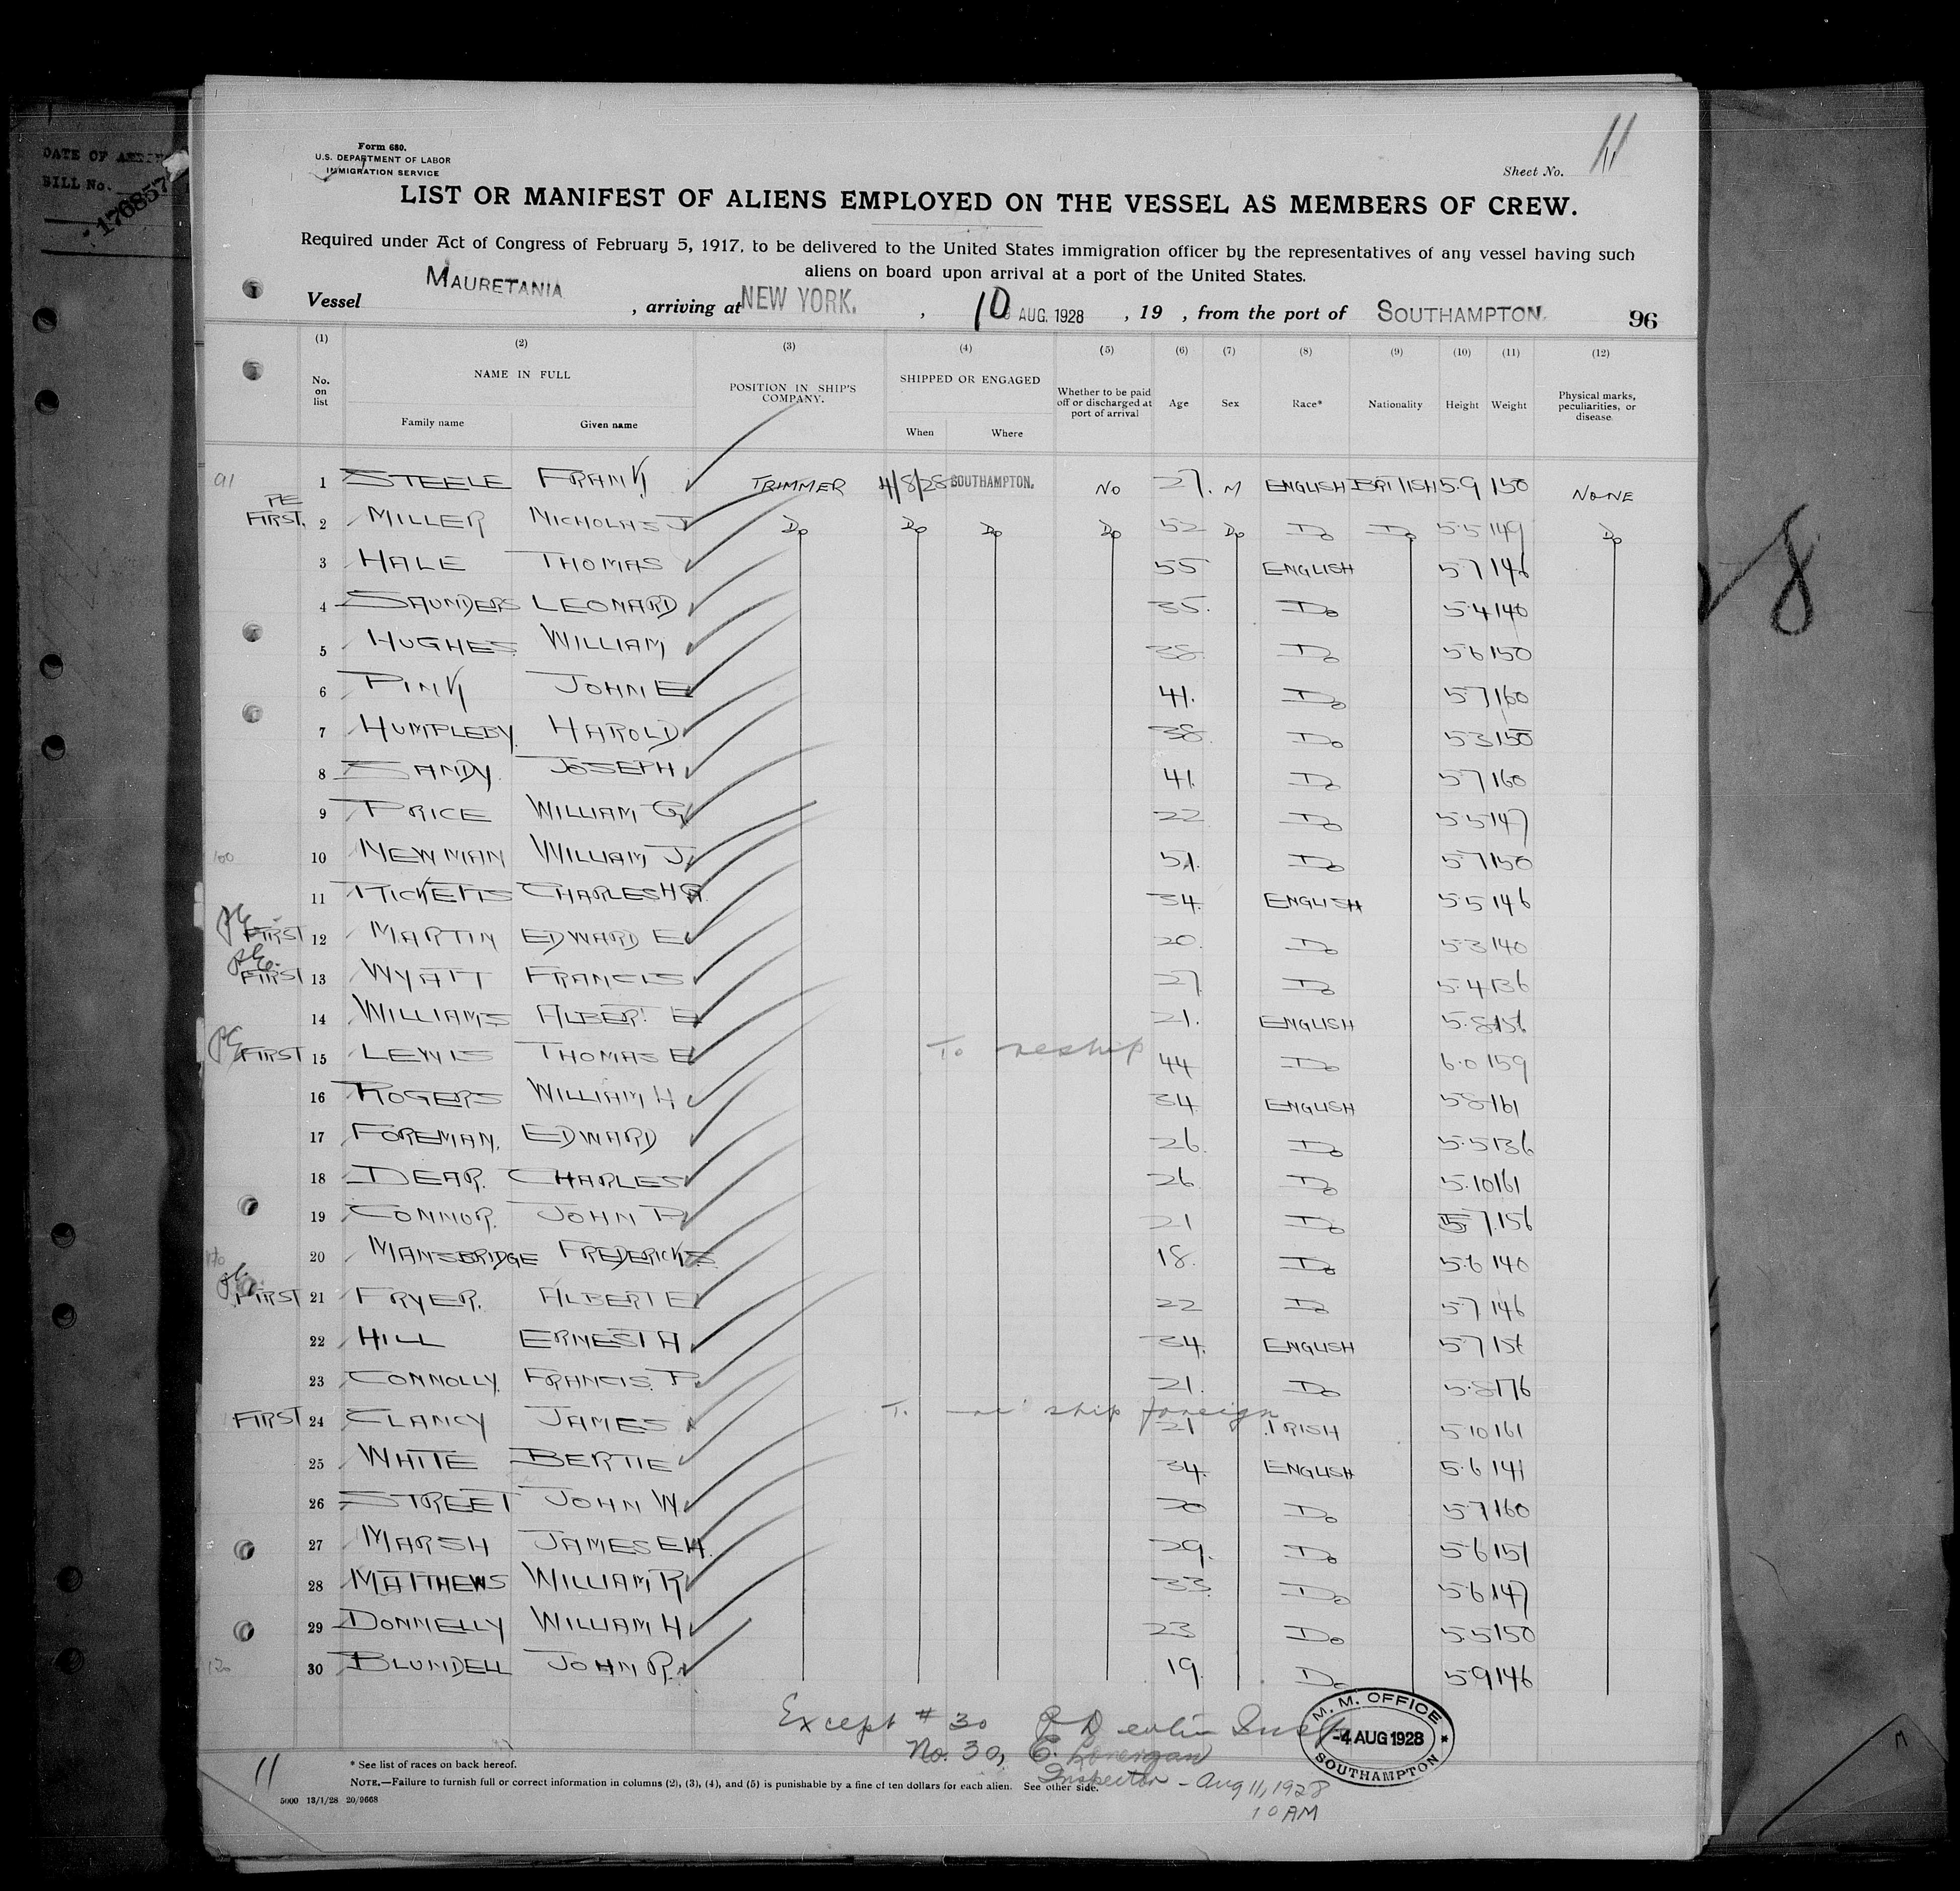 DATE OF
BILL No.
176857
Form 680.
U.S. DEPARTMENT OF LABOR
IMMIGRATION SERVICE
Sheet No. 11
LIST OR MANIFEST OF ALIENS EMPLOYED ON THE VESSEL AS MEMBERS OF CREW.
Required under Act of Congress of February 5, 1917, to be delivered to the United States immigration officer by the representatives of any vessel having such
aliens on board upon arrival at a port of the United States.
Vessel MAURETANIA , arriving at NEW YORK. , 10 AUG. 1928 , 19 , from the port of SOUTHAMPTON. 96
(1) (2) (3) (4) (5) (6) (7) (8) (9) (10) (11) (12)
No. on list NAME IN FULL Family name Given name POSITION IN SHIP'S COMPANY. SHIPPED OR ENGAGED When Where Whether to be paid off or discharged at port of arrival Age Sex Race* Nationality Height Weight Physical marks, peculiarities, or disease.
91 1 STEELE FRANK TRIMMER 4/8/28 SOUTHAMPTON. NO 27. M ENGLISH BRITISH 5.9 150 NONE
PE FIRST. 2 MILLER NICHOLAS J Do Do Do Do 52 Do Do Do 5.5 149 Do
3 HALE THOMAS 55 ENGLISH 5.7 146
4 SAUNDERS LEONARD 35. Do 5.4 140
5 HUGHES WILLIAM 38. Do 5.6 150
6 PINK JOHN E 41. Do 5.7 160
7 HUMPLEBY. HAROLD 38. Do 5.3 150
8 SANDY. JOSEPH 41. Do 5.7 160
9 PRICE WILLIAM G 22 Do 5.5 147
100 10 NEWMAN WILLIAM J. 51. Do 5.7 150
11 RICKETTS CHARLES H G. 34. ENGLISH 5.5 146
PE FIRST 12 MARTIN EDWARD E 20. Do 5.3 140
PE. FIRST 13 WYATT FRANCIS 27. Do 5.4 136
14 WILLIAMS ALBERT E 21. ENGLISH 5.8 156
PE FIRST 15 LEWIS THOMAS E To reship 44 Do 6.0 159
16 ROGERS WILLIAM H 34. ENGLISH 5.8 161
17 FOREMAN. EDWARD 26. Do 5.5 136
18 DEAR. CHARLES 26. Do 5.10 161
19 CONNOR. JOHN P. 21 Do 5.7 156
110 20 MANSBRIDGE FREDERICK S. 18. Do 5.6 140
PE. FIRST 21 FRYER. ALBERT E 22 Do 5.7 146
22 HILL ERNEST A 34. ENGLISH 5.7 156
23 CONNOLLY. FRANCIS. P. 21. Do 5.8 176
FIRST 24 CLANCY JAMES To re ship foreign 21 IRISH 5.10 161
25 WHITE BERTIE 34. ENGLISH 5.6 141
26 STREET JOHN W. Do 5.7 160
27 MARSH JAMES E H. 29. Do 5.6 151
28 MATTHEWS WILLIAM R 33. Do 5.6 147
29 DONNELLY WILLIAM H 23 Do 5.5 150
120 30 BLUNDELL JOHN R. 19. Do 5.9 146
28
Except # 30
No. 30, E.
Inspector - Aug 11, 1928
10 AM
M. M. OFFICE
-4 AUG 1928
SOUTHAMPTON
11
* See list of races on back hereof.
NOTE.—Failure to furnish full or correct information in columns (2), (3), (4), and (5) is punishable by a fine of ten dollars for each alien. See other side.
5000 13/1/28 20/9668